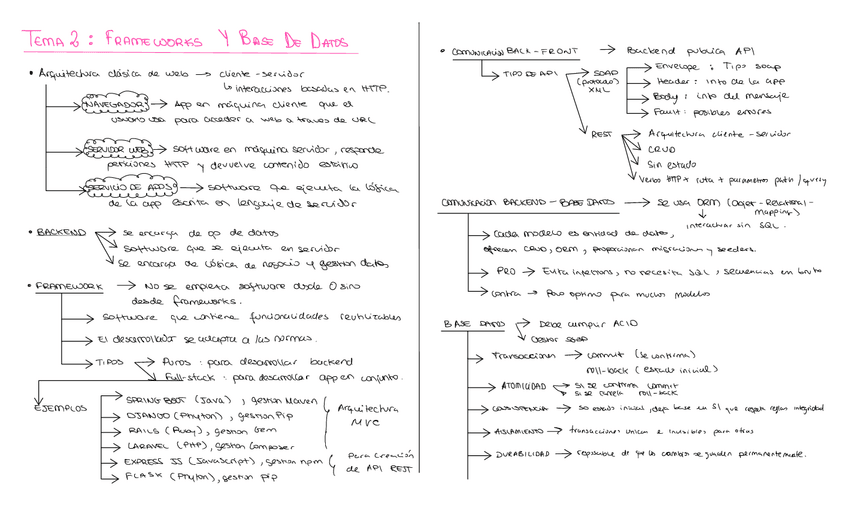 TEMA 2: FRAMEWORKS Y BASE DE DATOS
• Arquitectura clásica de web → cliente-servidor
↳ interacciones basadas en HTTP.
NAVEGADOR → App en máquina cliente que el
usuario usa para acceder a web a través de URL
SERVIDOR WEB → software en máquina servidor, responde
peticiones HTTP y devuelve contenido estático
SERVICIO DE APPS → software que ejecuta la lógica
de la app escrita en lenguaje de servidor
• BACKEND → se encarga de de datos
software que se ejecuta en servidor
se encarga de lógica de negocio y gestion datos
• FRAMEWORK → No se empieza software desde 0 sino
desde frameworks.
→ software que contiene funcionalidades reutilizables
→ El desarrollador se adapta a las normas.
→ TIPOS → Puros : para desarrollar backend
Full-stack : para desarrollar app en conjunto.
EJEMPLOS
→ SPRING BOOT (Java), gestion Maven
→ DJANGO (Phyton), gestion Pip
→ RAILS (Ruby), gestion Gem
→ LARAVEL (PHP), gestion Composer
Arquitectura
MVC
→ EXPRESS JS (JavaScript), gestion npm
→ FLASK (Phyton), gestion pip
Para creación
de API REST
• COMUNICACIÓN BACK-FRONT → Backend publica API
→ TIPO DE API → SOAP
(protocolo)
XML
→ Envelope : Tipo soap
→ Header : info de la app
→ Body : info del mensaje
→ Fault : posibles errores
REST → Arquitectura cliente-servidor
CRUD
Sin estado
Verbos HTTP + ruta + parametros path/query
COMUNICACIÓN BACKEND-BASE DATOS → se usa ORM (Objet-Relational-
mapping)
interactuar sin SQL.
→ Cada modelo es entidad de datos,
ofrecen CRUD, ORM, proporcionan migraciones y seeders.
→ PRO → Evita infections, no necesita SQL, secuencias en bruto
→ Contra → Poco optimo para muchos modelos
BASE DATOS → Debe cumplir ACID
→ Transacciones → commit (se confirma)
roll-back (estado inicial)
→ ATOMICIDAD → Si se confirma commit
si se cancela roll-back
→ CONSISTENCIA → so estado inicial, deja base en SI que respeta reglas integridad
→ AISLAMIENTO → transacciones unicas e invisibles para otras
→ DURABILIDAD → responsable de que los cambios se guarden permanentemente.